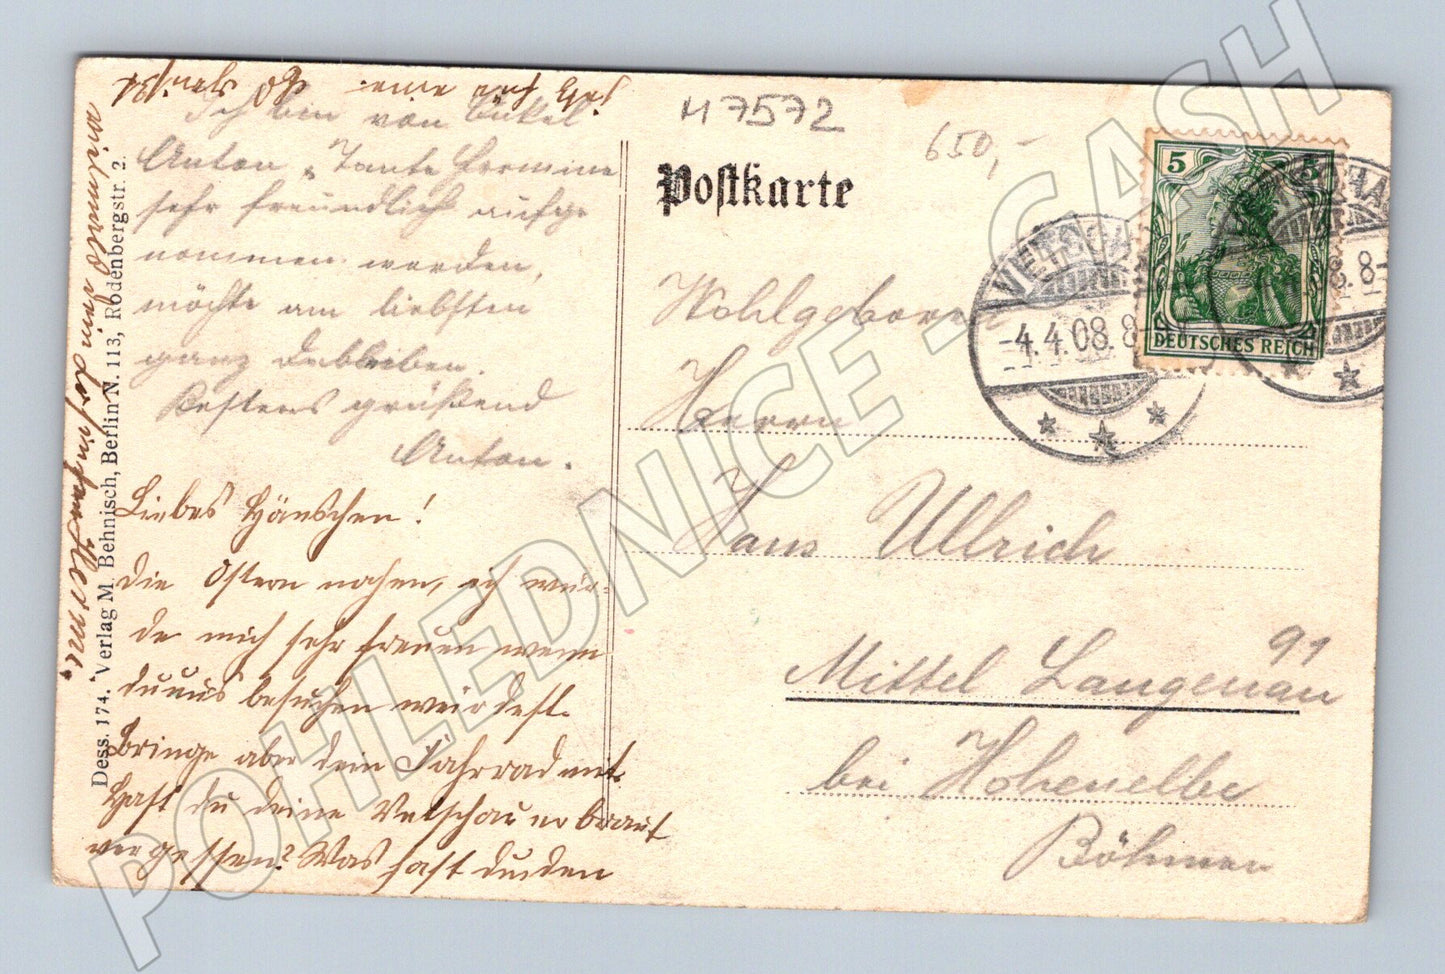 M 7572
650,-
Postkarte
5 5
DEUTSCHES REICH
VETSCHAU
4.4.08. 8-
Ich bin von Onkel
Anton u. Tante Hermine
sehr freundlich aufge
nommen worden,
möchte am liebsten
ganz dableiben.
Bestens grüßend
Anton.
Liebes Hänschen!
Die Ostern nahen, ich wür-
de mich sehr freuen wenn
du uns besuchen würdest.
Bringe aber dein Fahrrad mit.
Hast du deine Vetschauer braut
vergessen? Was hast du den
Wohlgeboren
Herrn
Hans Ullrich
Mittel Langenau 91
bei Hohenelbe
Böhmen
Dess. 174. Verlag M. Behnisch, Berlin N. 113, Rodenbergstr. 2.
POHLEDNICE - CASH